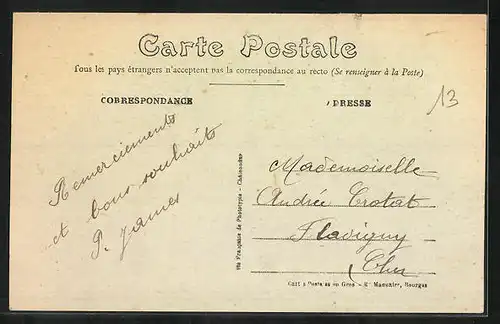 Carte Postale
Tous les pays étrangers n'acceptent pas la correspondance au recto (Se renseigner à la Poste)
CORRESPONDANCE
ADRESSE
13
Remerciements
et bons souhaits
P. James
Mademoiselle
Andrée Trotat
Flavigny
Cher
Sté Française de Phototypie - Châteaudun
Cart s Posta es en Gros - E. Maquaier, Bourges